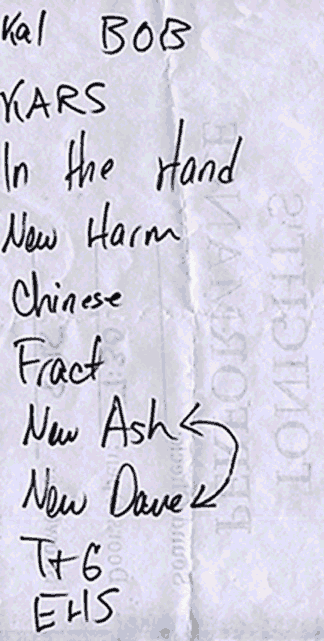 Kal BOB
KARS
In the Hand
New Harm
Chinese
Fract
New Ash
New Dave
T+G
EHS
TONIGHT'S
PERFORMANCE